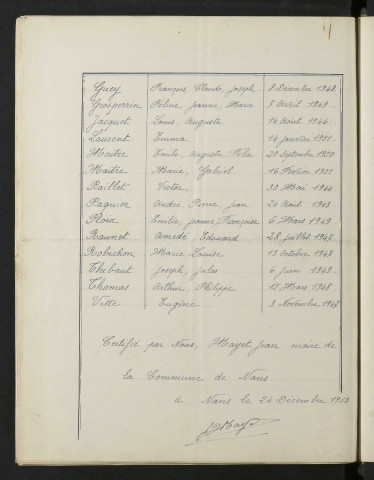 Guey François, Claude, Joseph 8 Décembre 1948
Grosperrin Féline Jeanne, Marie 7 Avril 1949
Jacquet Louis, Auguste 14 Août 1944
Laurent Emma 14 Janvier 1951
Maitre Emile, Auguste, Félix 20 Septembre 1950
Maitre Marie, Gabriel 16 Février 1951
Paillet Victor 30 Mai 1944
Paquier André, Pierre, Jean 24 Août 1948
Emilie, Jeanne, Françoise 6 Mars 1949
Amédé, Edouard 28 Juillet 1947
Robichon Marie Louise 15 Octobre 1947
Thibaut Joseph, Jules 6 Juin 1949
Thomas Arthur, Philippe 15 Mars 1948
Vitte Eugène 3 Novembre 1947
Certifié par Nous, Mayet Jean maire de
la Commune de Nans
à Nans le 24 Décembre 1953